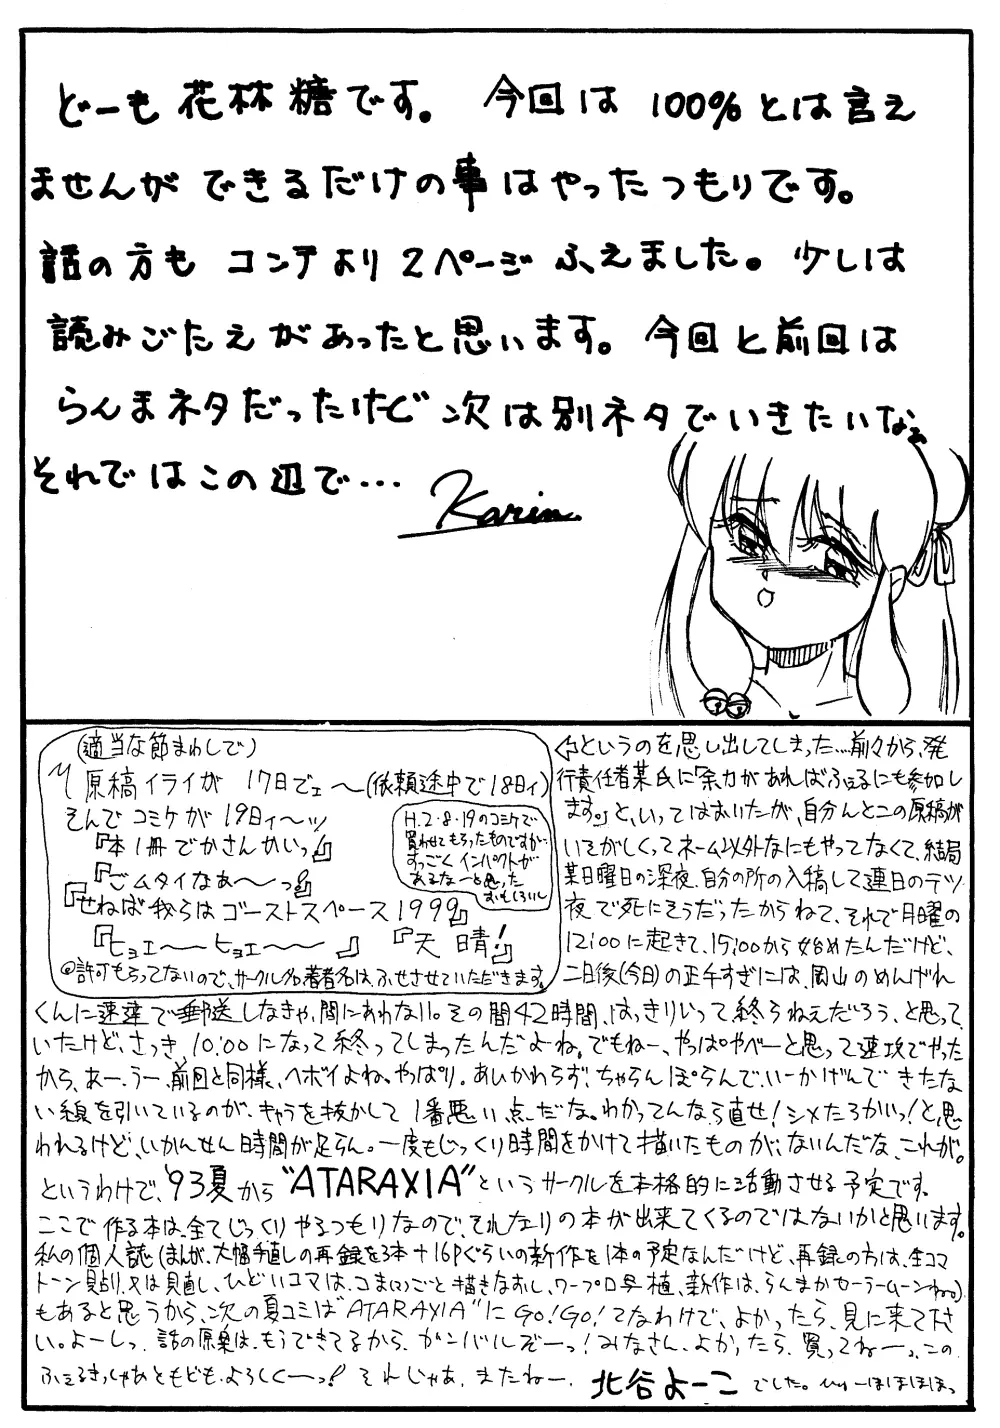 どーも 花林糖です。 今回は 100%とは言え
ませんが できるだけの事はやったつもりです。
話の方も コンテより 2ページ ふえました。少しは
読みごたえがあったと思います。今回と前回は
らんまネタだったけど 次は別ネタでいきたいなぁ
それではこの辺で…
Karin
(適当な節まわしで)
原稿イライが 17日でェ〜(依頼途中で18日ィ)
そんで コミケが 19日ィ〜ッ
『本1冊でかさんかいっ』
『ごムタイなあ〜っ!』
『せねば 我らは ゴーストスペース1999』
『ヒョエ〜 ヒョエ〜 』 『天晴!』
◎許可もらってないので、サークル名著者名は、ふせさせていただきます。
H.2・8・19のコミケで
買わせてもらったものですが…
すっごく インパクトが
あるなーと思った
おもしろいし
⇦というのを思い出してしまった…前々から、発
行責任者某氏に「余力があればふぇるにも参加し
ます。」と、いってはおいたが、自分んとこの原稿が
いそがしくってネーム以外なにもやってなくて、結局
某日曜日の深夜、自分の所の入稿して連日のテツ
夜で死にそうだったからねて、それで月曜の
12:00に起きて、15:00から始めたんだけど、
二日後(今日)の正午すぎには、岡山のめんげれ
くんに速達で郵送しなきゃ、間にあわない。その間42時間、はっきりいって終らねえだろう、と思って
いたけど、さっき、10:00になって終ってしまったんだよね。でもねー、やっぱやべーと思って速攻でやった
から、あー、うー、前回と同様、ヘボイよね。やっぱり。あいかわらず、ちゃらんぽらんで、いーかげんで きたな
い線を引いているのが、キャラを抜かして 1番悪い点だな。わかってんなら直せ!シメたろかいっ!と、思
われるけど、いかんせん時間が足らん。一度もじっくり時間をかけて描いたものが、ないんだな、これが。
というわけで、'93夏から "ATARAXIA"というサークルを本格的に活動させる予定です。
ここで 作る本は、全てじっくりやるつもりなので、それなりの本が出来てくるのではないかと思います。
私の個人誌(まんが、大幅手直しの再録を3本+16Pぐらいの新作を1本の予定なんだけど、再録の方は、全コマ
トーン見貼り、又は見直し、ひどいコマは、コマごと描きなおし、ワープロ写植、新作は、らんまかセーラームーンねっ)
もあると思うから、次の夏コミは"ATARAXIA"にGO!GO!てなわけで、よかったら、見に来て下さ
い。よーしっ、話の原案は、もうできてるから、ガンバルぞーっ!みなさん、よかったら、買ってねーっ、この
ふぇるきっしゃあともども、よろしくーっ! それじゃあ、またねー、 北谷よーこ でした。 ほほほほっ